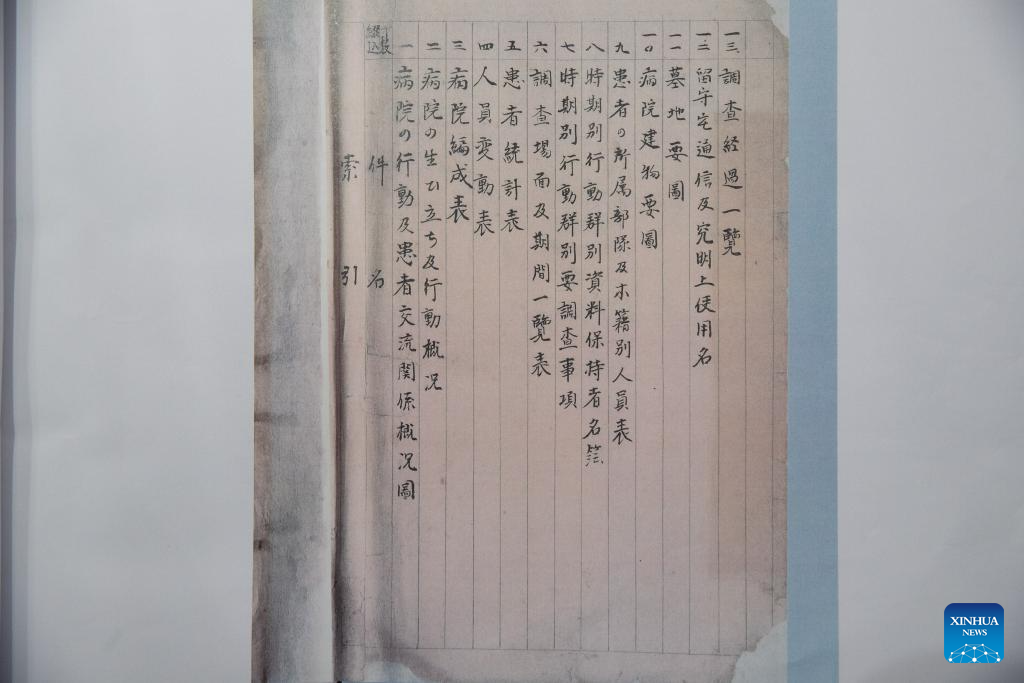 索引
綴込
件名
一 病院の行動及患者交流関係概況圖
二 病院の生ひ立ち及行動概況
三 病院編成表
四 人員変動表
五 患者統計表
六 調査場面及期間一覽表
七 時期別行動群別要調査事項
八 時期別行動群別資料保持者名簿
九 患者の所属部隊及本籍別人員表
一〇 病院建物要圖
一一 墓地要圖
一二 留守宅通信及究明上使用名
一三 調査経過一覽
XINHUA
NEWS